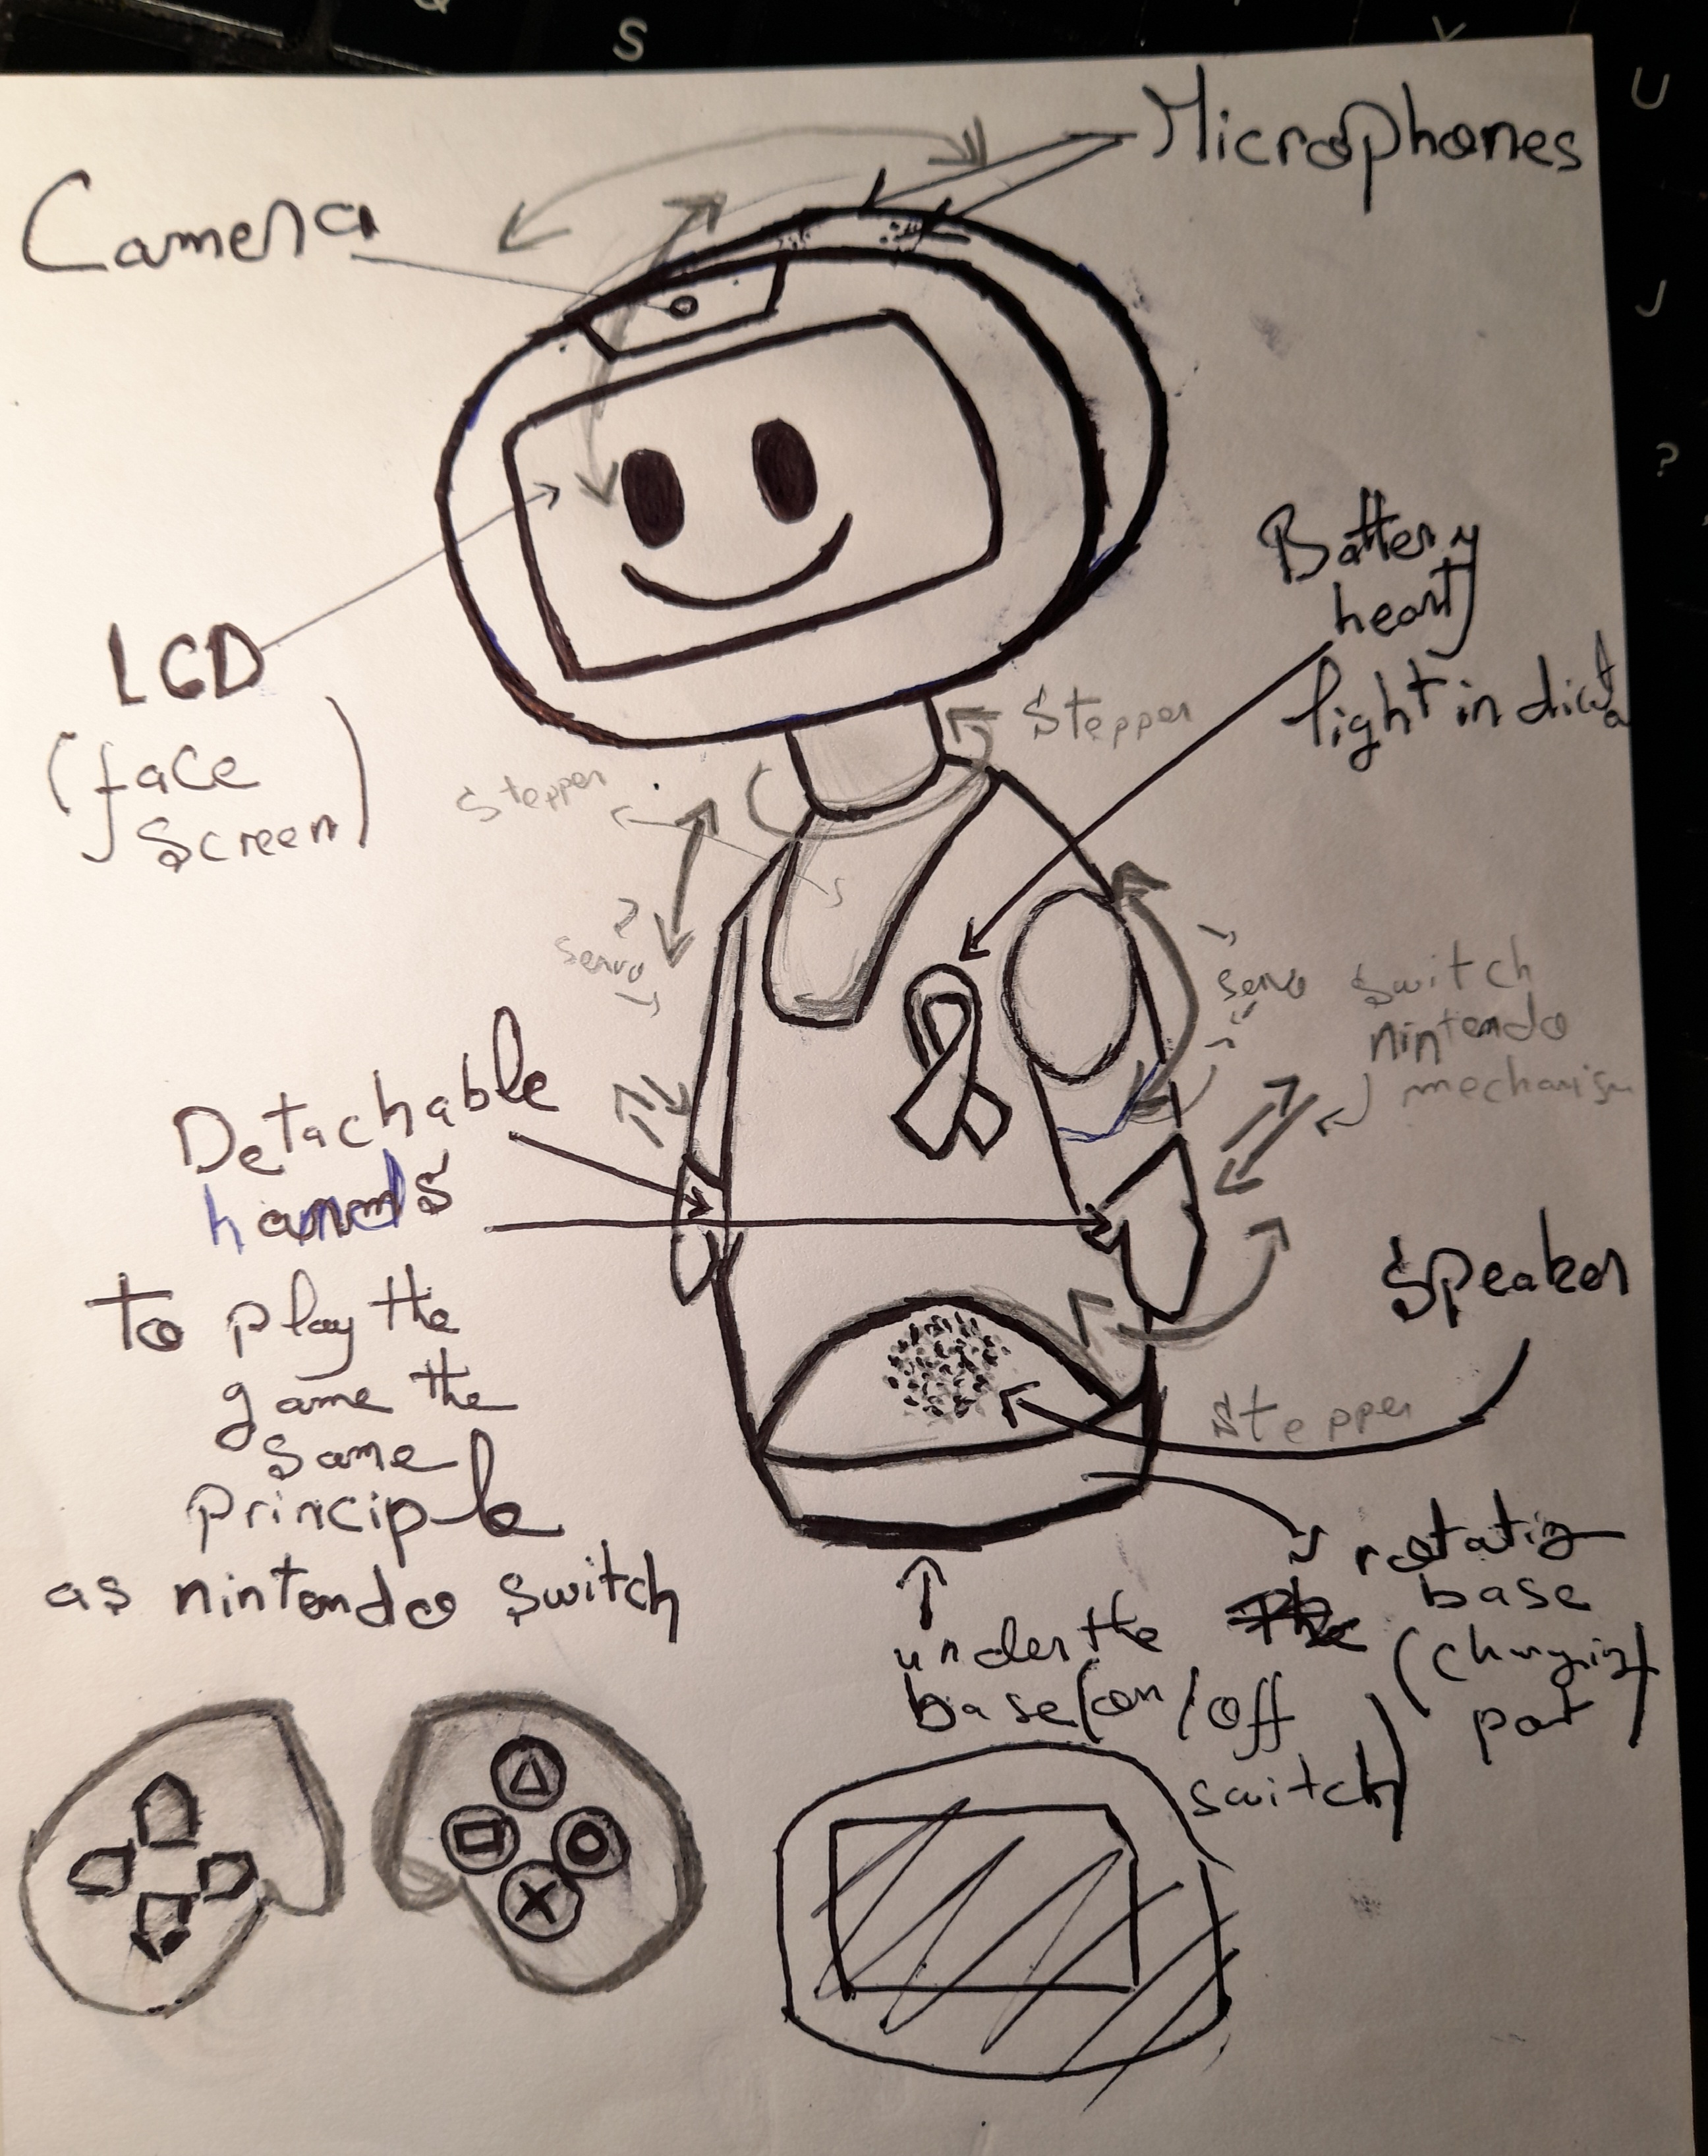 S
U
J
?
Microphones
Camera
LCD
(face
screen)
Battery
heart
light indicta
Stepper
Stepper
servo
servo
switch
nintendo
mechanism
Detachable
hands
to play the
game the
same
principle
as nintendo switch
Speaker
stepper
rotatig
base
(charging
part)
under the
base (on/off
switch)